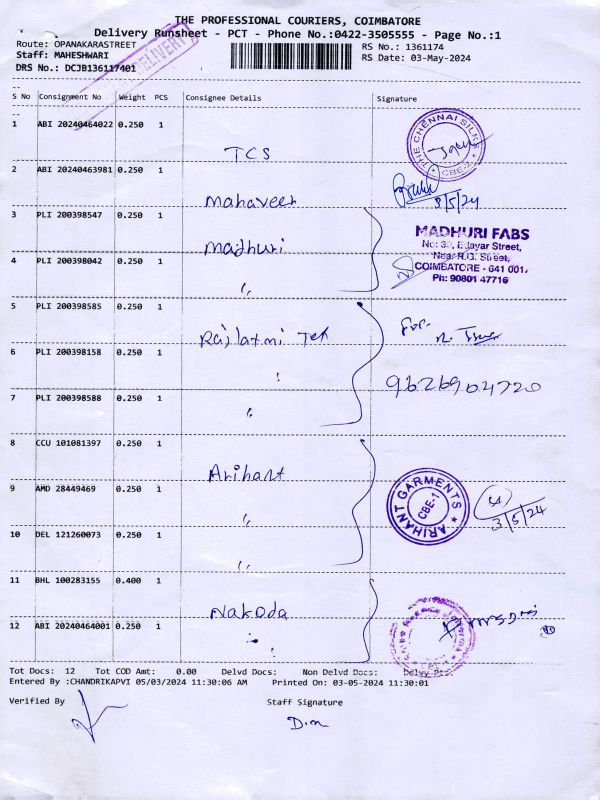 THE PROFESSIONAL COURIERS, COIMBATORE
Delivery Runsheet - PCT - Phone No.:0422-3505555 - Page No.:1
Route: OPANAKARASTREET
RS No.: 1361174
Staff: MAHESHWARI
RS Date: 03-May-2024
DRS No.: DCJB136117401
DELIVERY
S No Consignment No Weight PCS Consignee Details Signature
1 ABI 20240464022 0.250 1
TCS
THE CHENNAI SILKS
CBE-1
2 ABI 20240463981 0.250 1
Mahaveer
3/5/24
3 PLI 200398547 0.250 1
Madhuri
MADHURI FABS
Near R.G. Street,
COIMBATORE - 641 001.
Ph: 90801 47716
4 PLI 200398042 0.250 1
"
5 PLI 200398585 0.250 1
Rajlaxmi Tex
For.
6 PLI 200398158 0.250 1
"
9626904720
7 PLI 200398588 0.250 1
"
8 CCU 101081397 0.250 1
Arihant
9 AMD 28449469 0.250 1
"
ARIHANT GARMENTS
CBE-1
3/5/24
10 DEL 121260073 0.250 1
"
11 BHL 100283155 0.400 1
Nakoda
12 ABI 20240464001 0.250 1
"
Tot Docs: 12 Tot COD Amt: 0.00 Delvd Docs: Non Delvd Docs:
Entered By :CHANDRIKAPVI 05/03/2024 11:30:06 AM Printed On: 03-05-2024 11:30:01
Verified By
Staff Signature